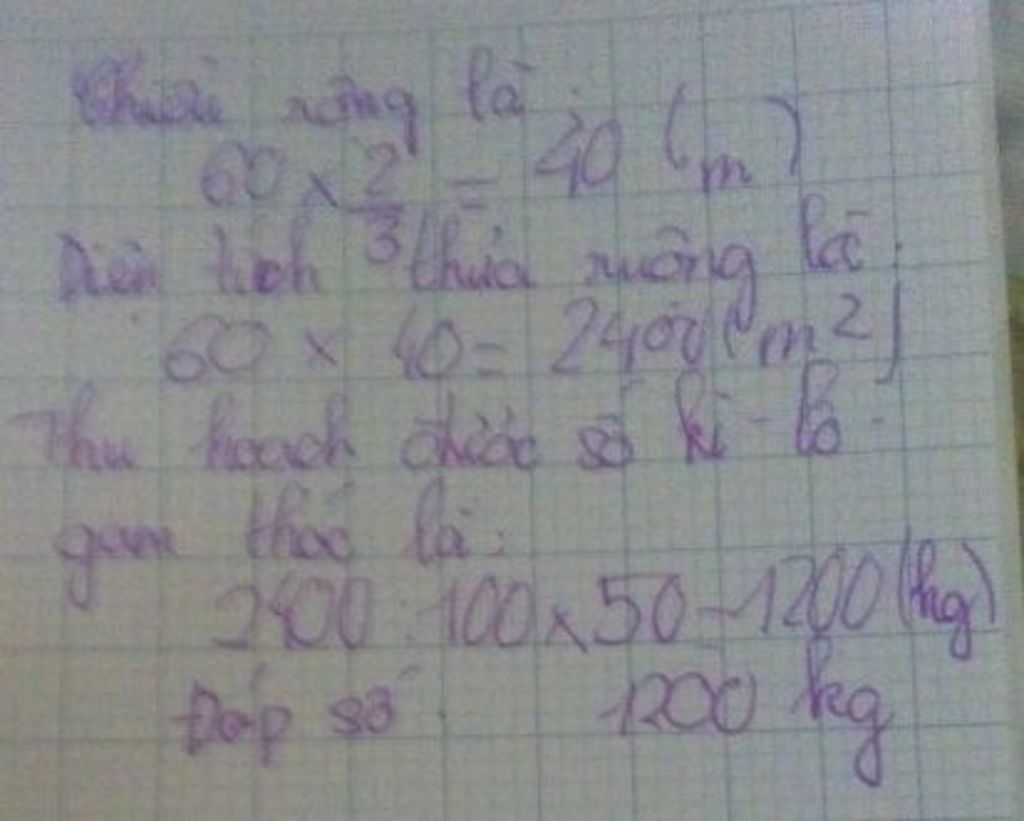 Chiều rộng là:
60 × 2/3 = 40 (m)
Diện tích thửa ruộng là:
60 × 40 = 2400 (m²)
Thu hoạch được số ki-lô-
gam thóc là:
2400 : 100 × 50 = 1200 (kg)
Đáp số 1200 kg